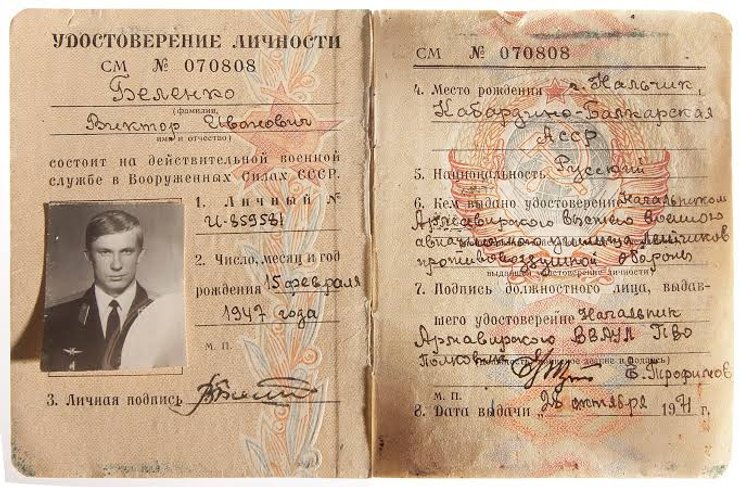 УДОСТОВЕРЕНИЕ ЛИЧНОСТИ
СМ № 070808
Беленко
(фамилия,
Виктор Иванович
имя и отчество)
состоит на действительной военной
службе в Вооруженных Силах СССР.
1. Личный №
И-859581
2. Число, месяц и год
рождения 15 февраля
1947 года
М. П.
3. Личная подпись
СМ № 070808
4. Место рождения г. Нальчик,
Кабардино-Балкарская
АССР
5. Национальность Русский
6. Кем выдано удостоверение Начальником
Армавирского высшего военного
авиационного училища летчиков
противовоздушной обороны
выдавшей удостоверение личности)
7. Подпись должностного лица, выдав-
шего удостоверение Начальник
Армавирского ВВАУЛ ПВО
Полковник воинское звание и подпись)
В. Трофимов
М. П.
8. Дата выдачи „28 октября 1971 г.